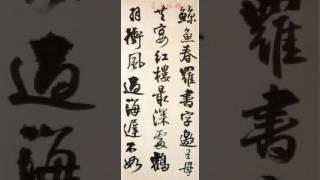 鯨魚春羅書字邀王母
共宴紅樓最深處鶴
羽衝風過海遲不如
羅書
過海